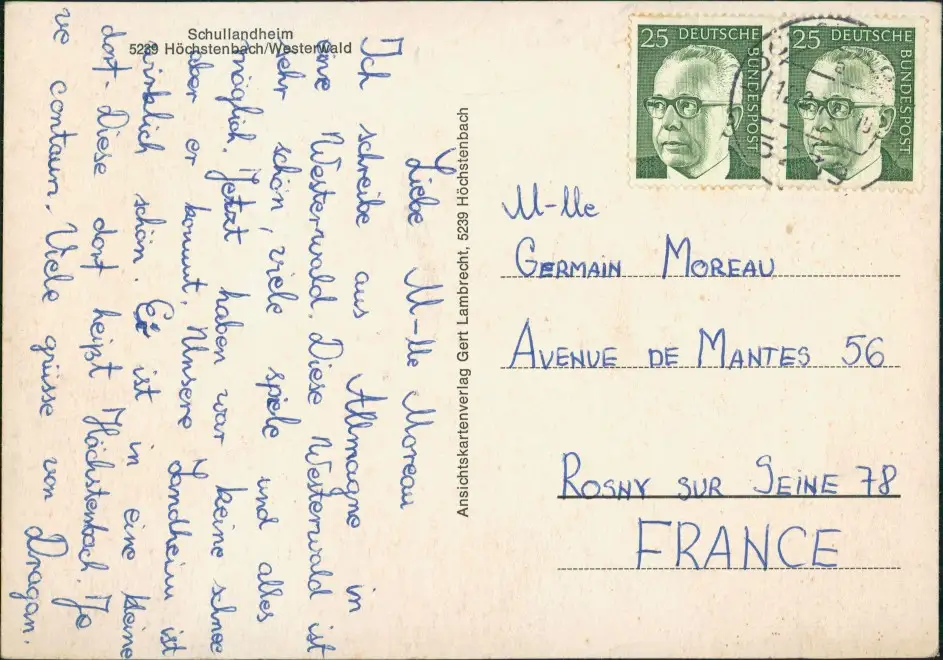 Schullandheim
5239 Höchstenbach/Westerwald
Liebe M-lle Moreau
Ich schreibe aus Allmagne in
eine Westerwald. Diese Westerwald ist
sehr schön, viele spiele und alles
möglich. Jetzt haben war keine schnee
aber er kommt. Unsere Landheim ist
wirklich schön. Es ist in eine kleine
dorf. Diese dorf heißt Höchstenbach. Je
ve contaun. Viele grüsse von Dragan.
Ansichtskartenverlag Gert Lambrecht, 5239 Höchstenbach
25 DEUTSCHE BUNDESPOST
25 DEUTSCHE BUNDESPOST
M-lle
GERMAIN MOREAU
AVENUE DE MANTES 56
ROSNY SUR SEINE 78
FRANCE